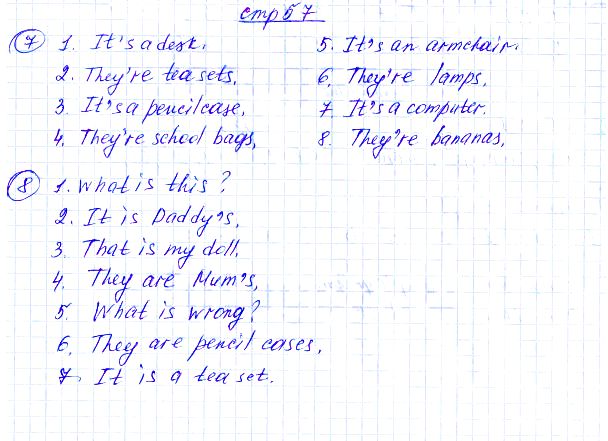 стр 57
7 1. It's a desk.
2. They're tea sets.
3. It's a pencil case.
4. They're school bags.
5. It's an armchair.
6. They're lamps.
7. It's a computer.
8. They're bananas.
8 1. What is this?
2. It is Daddy's.
3. That is my doll.
4. They are Mum's.
5. What is wrong?
6. They are pencil cases.
7. It is a tea set.